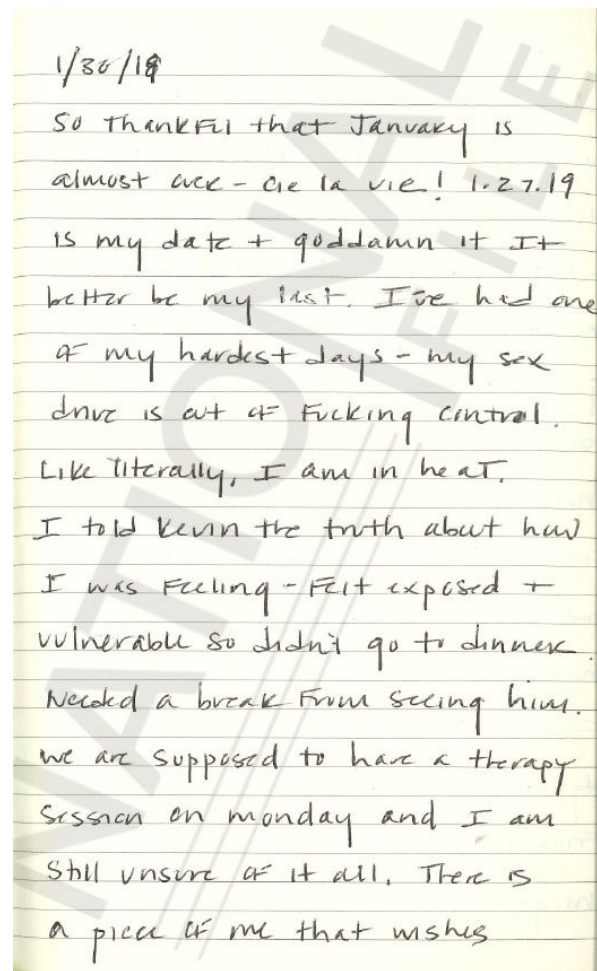 1/30/19
So thankful that January is
almost over - cie la vie! 1.27.19
is my date + goddamn it It
better be my last. I've had one
of my hardest days - my sex
drive is out of fucking control.
Like literally, I am in heat.
I told Kevin the truth about how
I was feeling - Felt exposed +
vulnerable so didn't go to dinner.
Needed a break from seeing him.
we are supposed to have a therapy
session on monday and I am
still unsure of it all. There is
a piece of me that wishes
NATIONAL
FILE